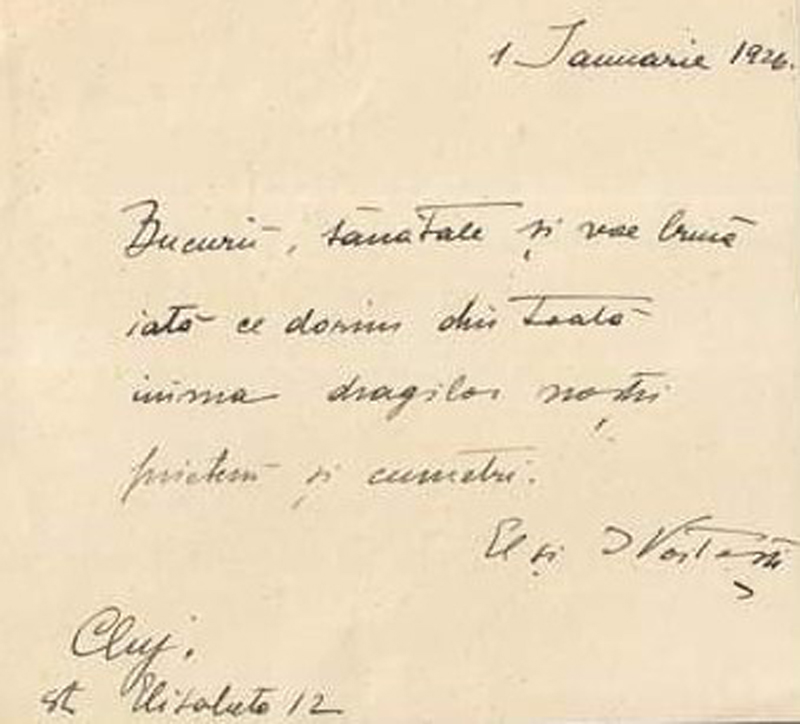 1 Ianuarie 1926.
Bucurii, sănătate și voe bună
iată ce dorim din toată
inima dragilor noștri
prieteni și cumetri.
El și I
Cluj.
st Elisabeta 12